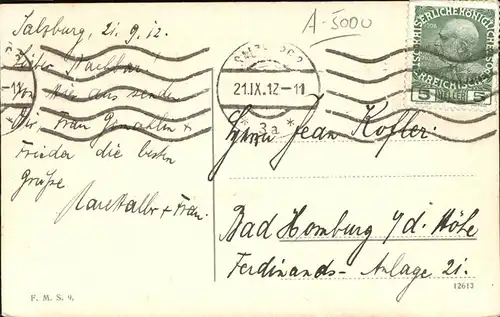 Salzburg, 21.9.12.
Lieber
Von hier aus senden
Dir, Frau Gemahlin +
Frieder die besten
Grüße
+ Frau.
A-5000
SALZBURG 2
21.IX.12-11
* 3a *
KAISERLICHE KÖNIGLICHE
ÖSTERREICHISCHE
5 HELLER 5
Herrn Jean Kofler.
Bad Homburg v/d. Höhe
Ferdinands-Anlage 21.
F. M. S. 9.
12613